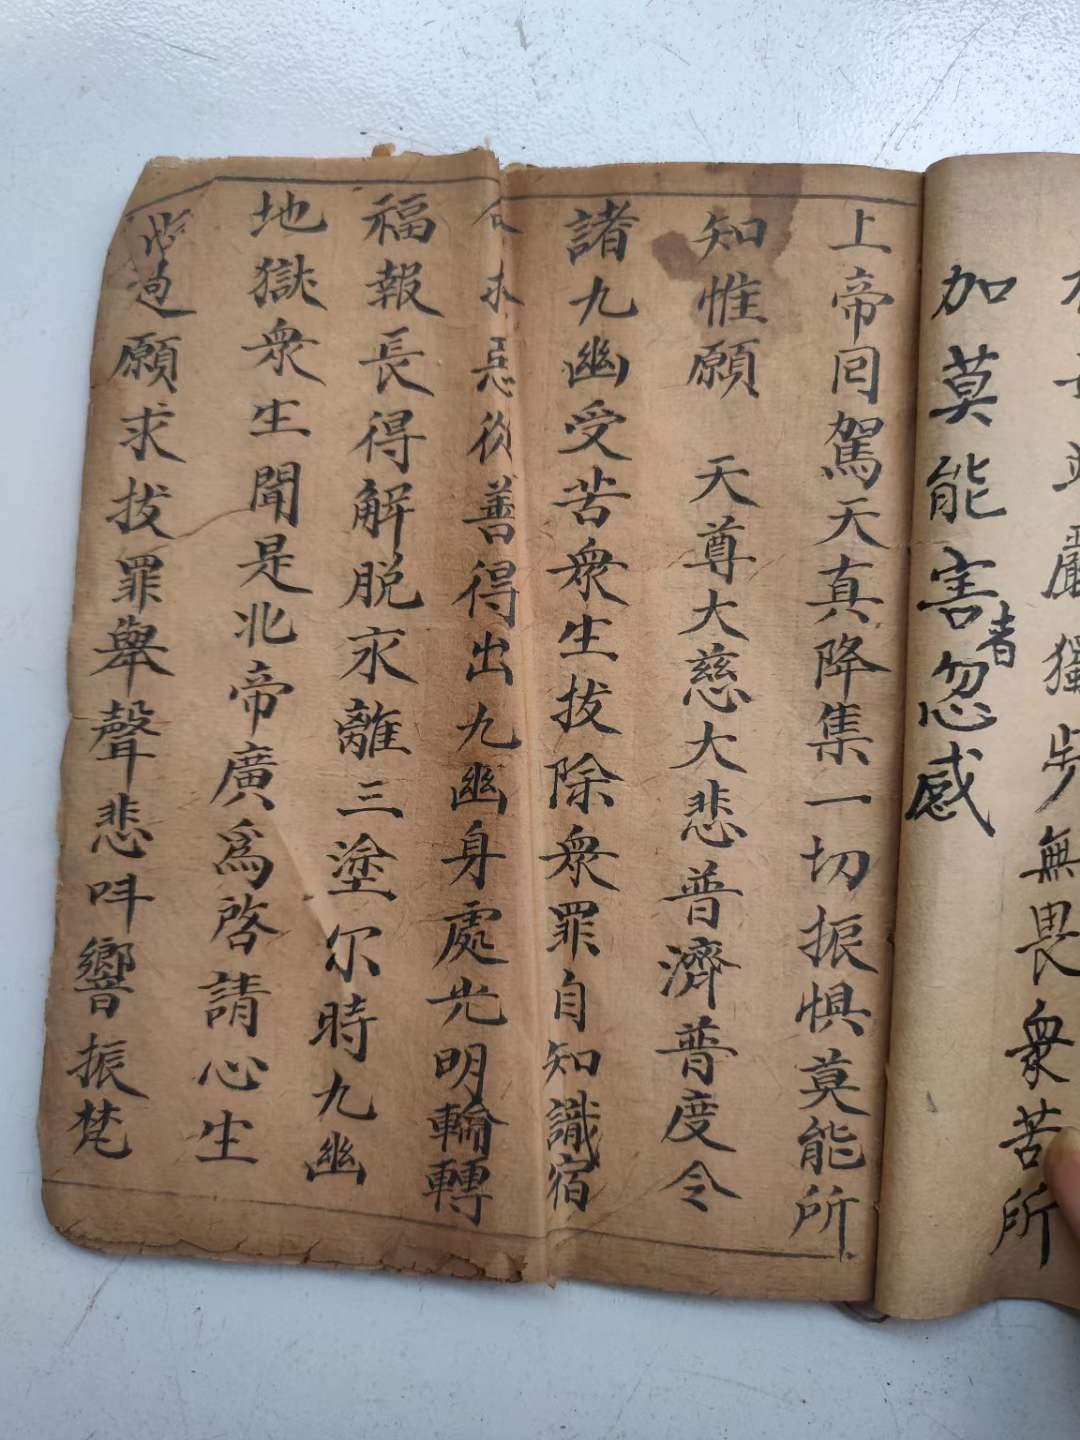 嚴獨步無畏衆苦所
加莫能害者忽感
上帝囘駕天真降集一切振惧莫能所
知惟願　天尊大慈大悲普濟普度令
諸九幽受苦衆生拔除衆罪自知識宿
命求惡從善得出九幽身處光明輪轉
福報長得解脱永離三塗尔時九幽
地獄衆生聞是北帝廣爲啓請心生
過願求拔罪舉聲悲呌響振梵